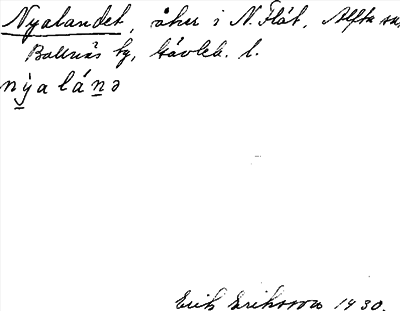 Nyalandet, åker i N. Flät, Alfta sn,
Bollnäs kg, Gävleb. l.
nỳalánə
Erik Eriksson 1930.